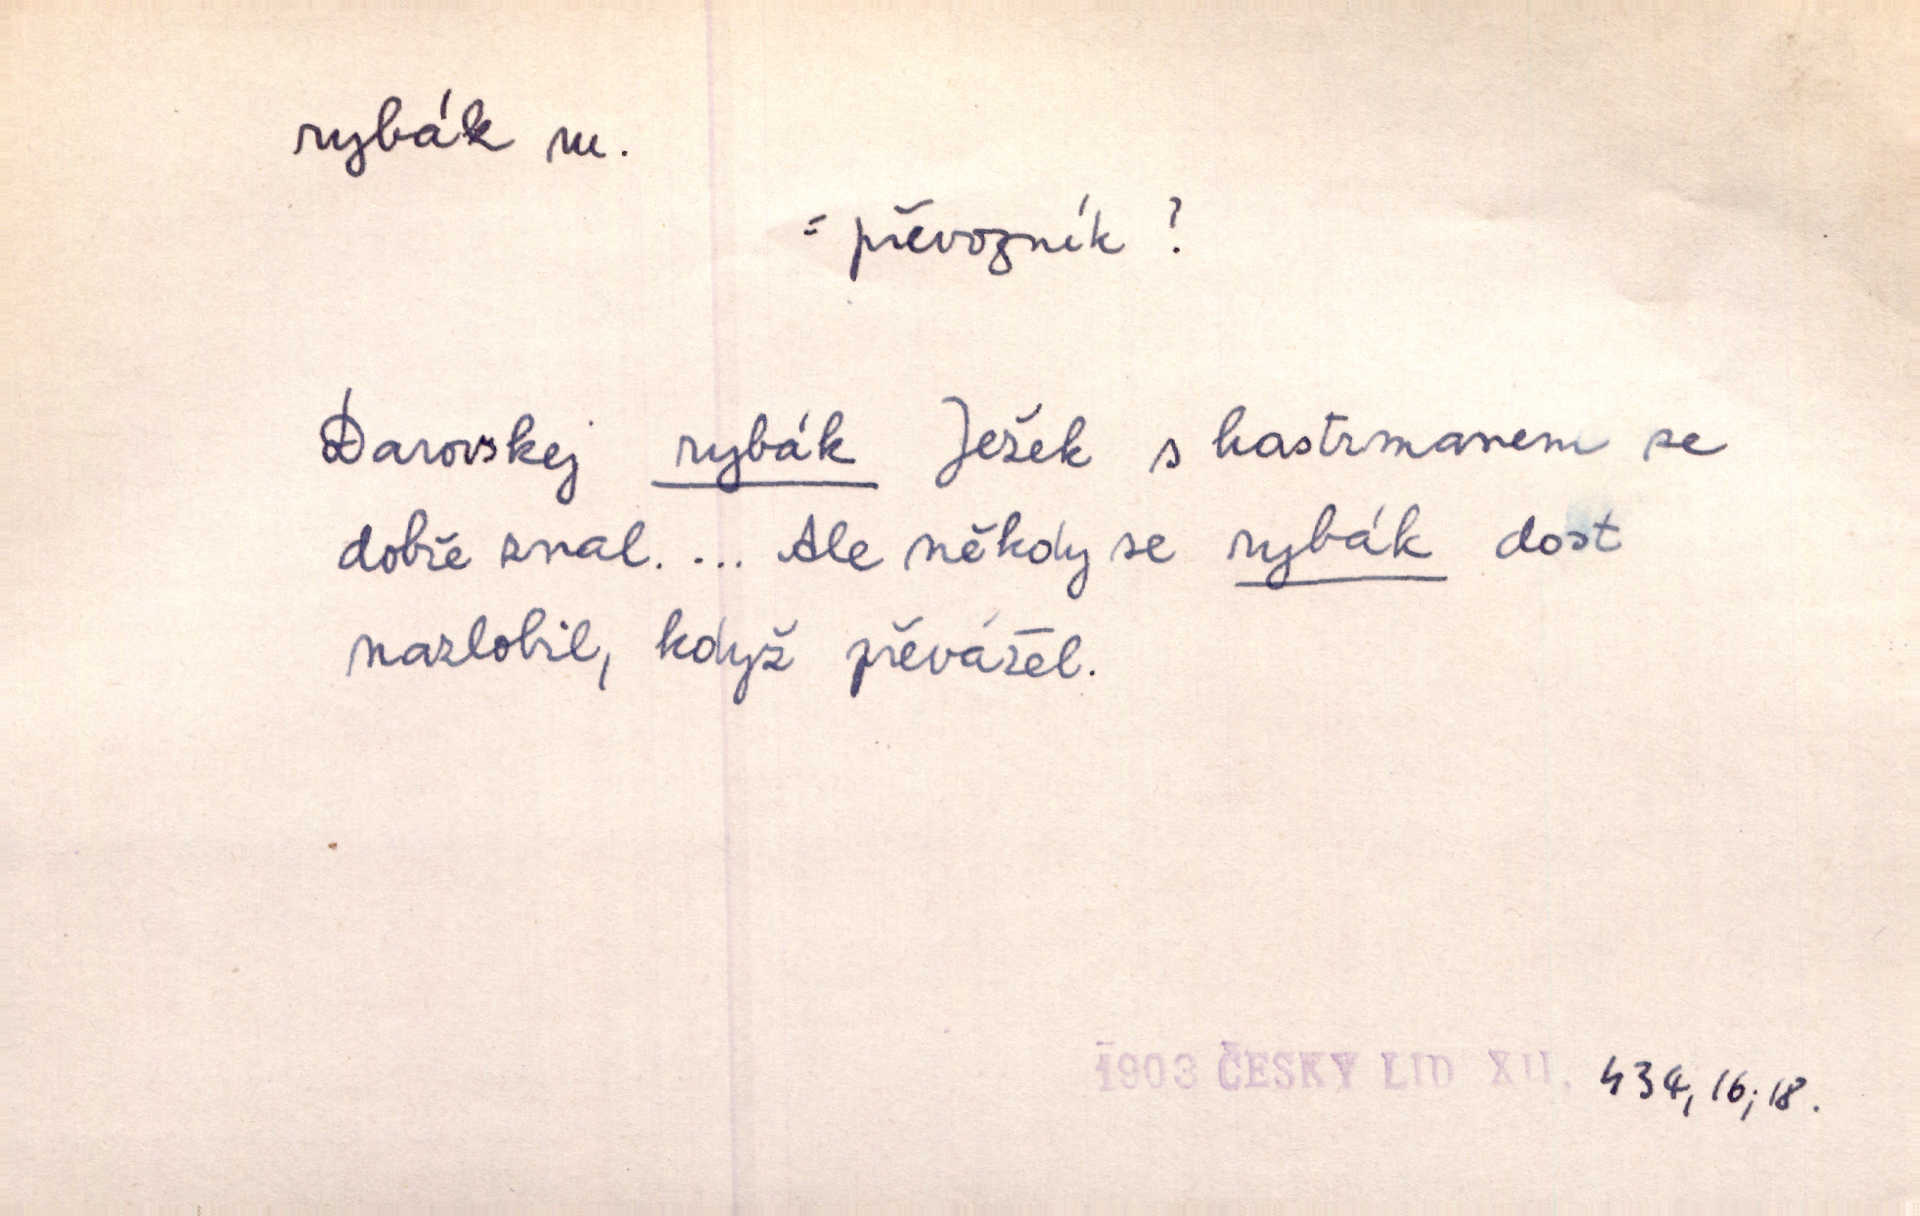 rybák m.
= převozník ?
Darovskej rybák Ježek s hastrmanem se
dobře znal. ... Ale někdy se rybák dost
nazlobil, když převážel.
1903 ČESKÝ LID XII. 434, 16; 18.